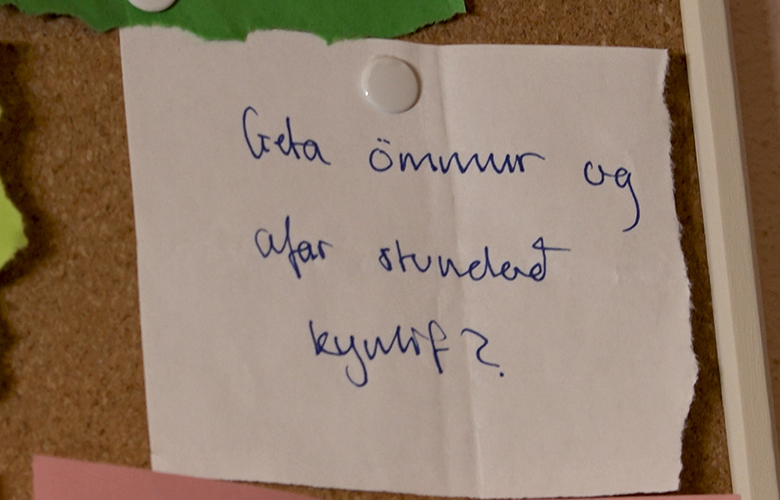 Geta ömmur og
afar stundað
kynlíf?